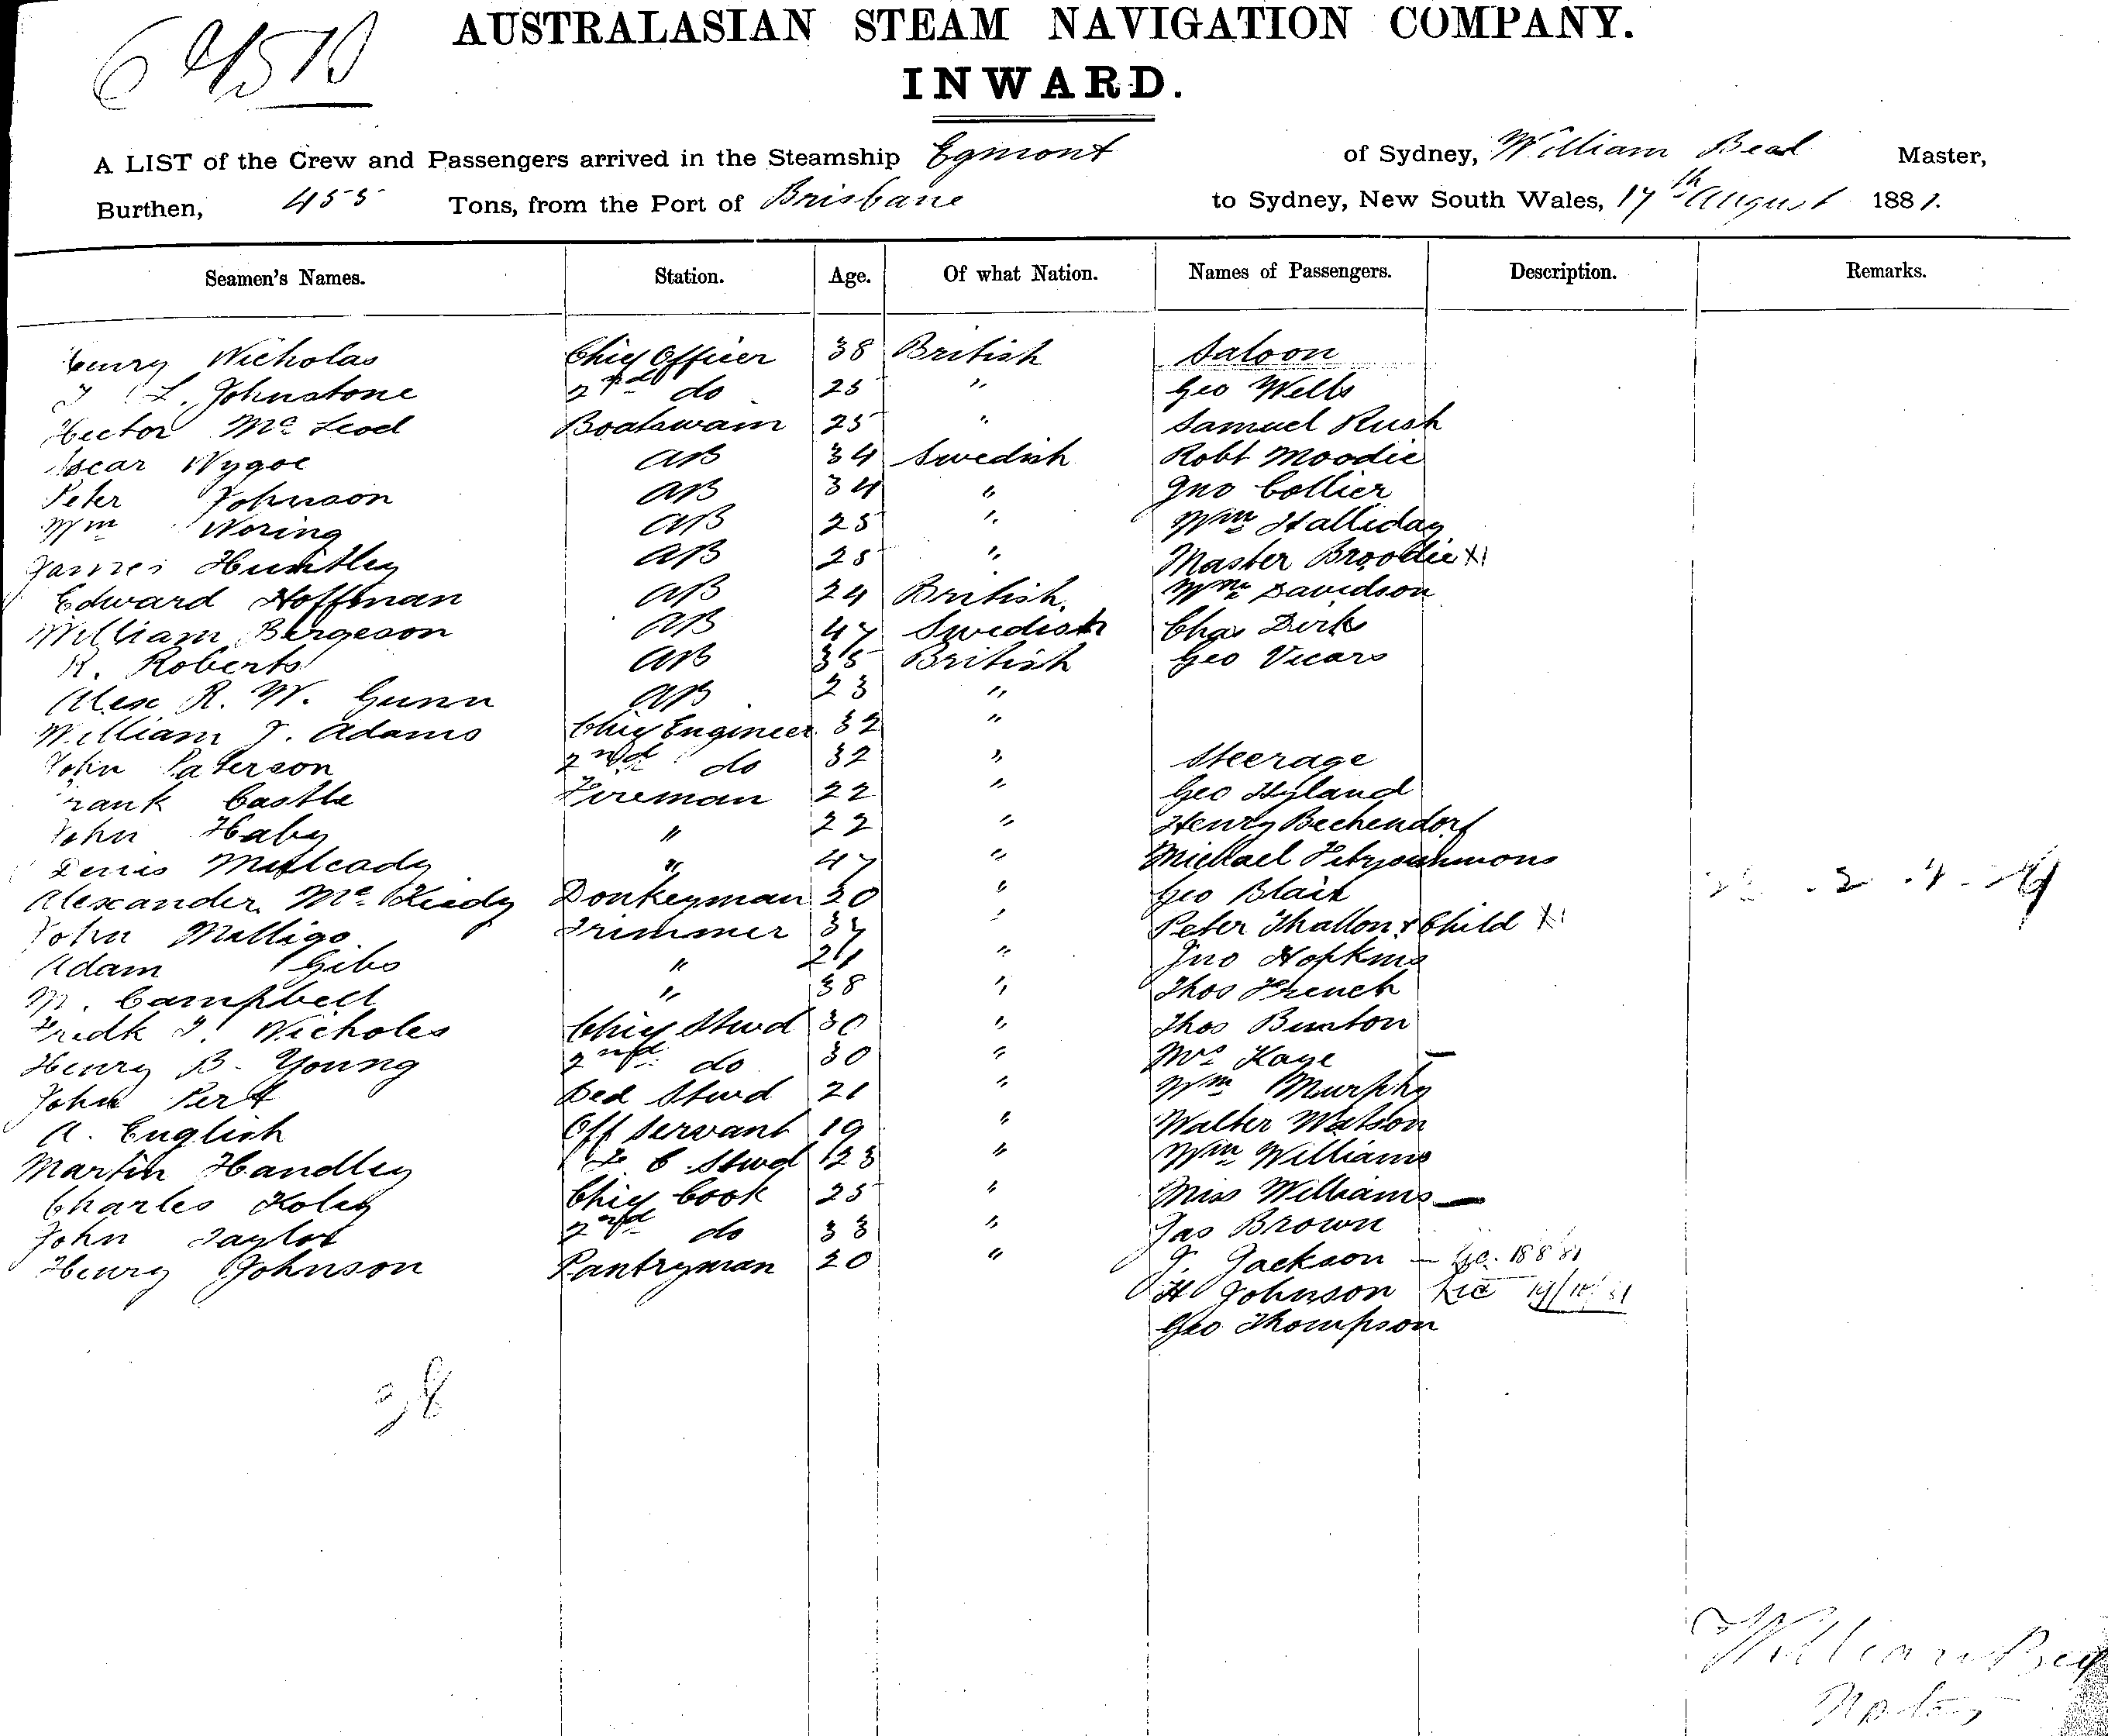 6451B
AUSTRALASIAN STEAM NAVIGATION COMPANY.
INWARD.
A LIST of the Crew and Passengers arrived in the Steamship Egmont of Sydney, William Beal Master,
Burthen, 455 Tons, from the Port of Brisbane to Sydney, New South Wales, 17th August 1881.
Seamen's Names. Station. Age. Of what Nation. Names of Passengers. Description. Remarks.
Henry Nicholas Chief Officer 38 British Saloon
L. Johnstone 2nd do 25 " Geo Wells
Hector Mc Leod Boatswain 25 " Samuel Rush
Oscar Nygoe AB 34 Swedish Robt Moodie
Peter Johnson AB 34 " Jno Collier
Wm Woring AB 25 " Wm Halliday
James Huntley AB 25 " Master Broodie X1
Edward Hoffman AB 24 British. Wm Davidson
William Bergeson AB 47 Swedish Chas Dirks
R. Roberts AB 35 British Geo Vicars
Alex R. W. Gunn AB 23 "
William J. Adams Chief Engineer 32 "
John Paterson 2nd do 32 " Steerage
Frank Castle Fireman 22 " Geo Hyland
John Haby " 22 " Henry Bechendorf
Denis Mulcady " 47 " Michael Fitzsimmons
Alexander Mc Ready Donkeyman 30 " Geo Blair
John Milligo Trimmer 37 " Peter Thallon & Child X1
Adam Gibs " 21 " Jno Hopkins
M. Campbell " 38 " Thos French
Fredk J. Nicholes Chief Stwd 30 " Thos Burton
Henry B. Young 2nd do 30 " Mrs Kaye —
John Pert Bed Stwd 21 " Wm Murphy
A. English Off Servant 19 " Walter Watson
Martin Handley F. C Stwd 23 " Wm Williams
Charles Foley Chief Cook 25 " Miss Williams —
John Taylor 2nd do 33 " Jas Brown
Henry Johnson Pantryman 20 " J. Jackson —
H Johnson
Geo Thompson
28
William